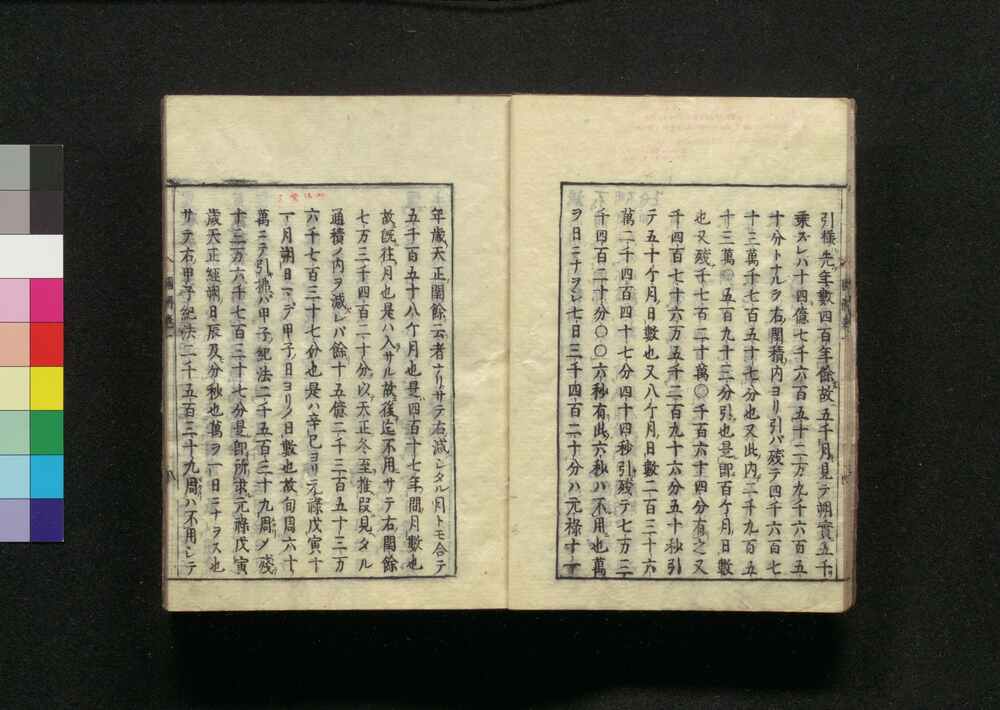 引様先年數四百年餘故五千月見テ朔實五千
乗ズレバ十四億七千六百五十二万九千六百五
十分トナルヲ右閏積内ヨリ引バ殘テ四千六百七
十三萬千七百五十七分也又此内二千九百五
十三萬〇五百九十三分引也是即百ケ月日數
也又殘千七百二十萬〇千百六十四分有之又
千四百七十六万五千二百九十六分五十秒引
テ五十ケ月日數也又八ケ月日數二百三十六
萬二千四百四十七分四十四秒引殘テ七万三
千四百二十分〇〇六秒有此六秒ハ不用也萬
ヲ日ニナヲシ七日三千四百二十分ハ元禄十一
年歳天正閏餘云者ナリサテ右減シタル月トモ合テ
五千百五十八ケ月也是四百十七年間月數也
故既往月也是ハ入サル故後迄不用サテ右閏餘
七万三千四百二十分以天正冬至推段見タル
通積ノ内ヲ減レバ餘十五億二千三百五十三万
六千七百三十七分也是ハ辛巳ヨリ元禄戊寅十
一月朔日マデ甲子ノ日ヨリノ日數也故旬周六十
萬ニテ引拂バ甲子紀法二千五百三十九周ノ殘
十三万六千七百三十七分是即所求元禄戊寅
歳天正經朔日辰及分秒也萬ヲ一日ニナヲス也
サテ右甲子紀法二千五百三十九周ハ不用シテ